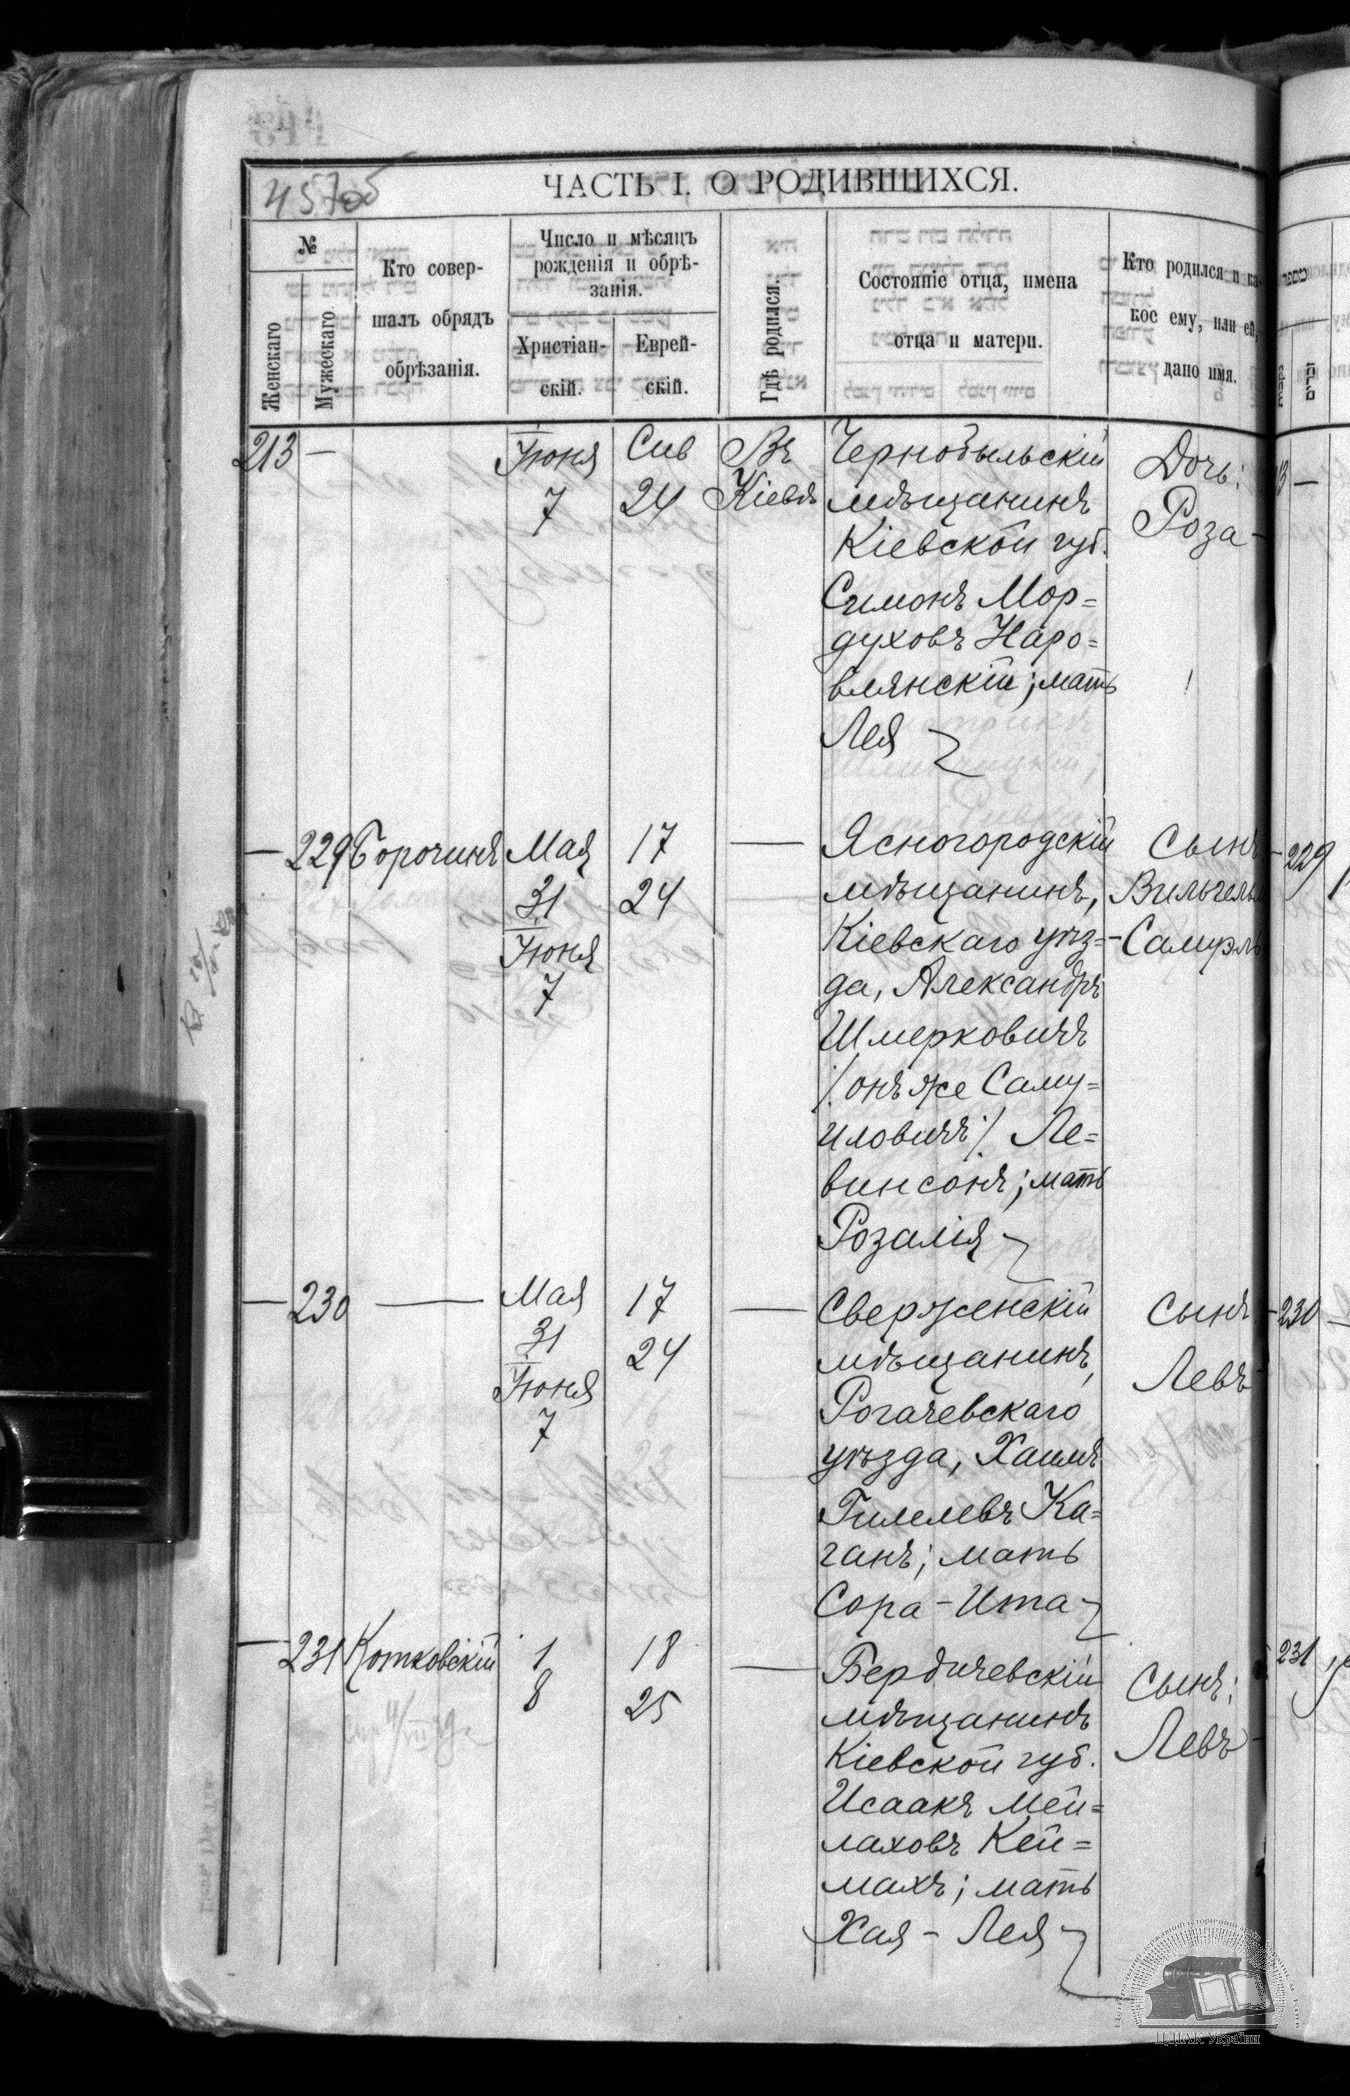 457об
ЧАСТЬ I. О РОДИВШИХСЯ.
№
Женскаго
Мужескаго
Кто совер-
шалъ обрядъ
обрѣзанія.
Число и мѣсяцъ
рожденія и обрѣ-
занія.
Христіан-
скій.
Еврей-
скій.
Гдѣ родился.
Состояніе отца, имена
отца и матери.
Кто родился и ка-
кое ему, или ей,
дано имя.
213 —
Іюня
7
Сив
24
Въ
Кіевѣ
Чернобыльскій
мѣщанинъ
Кіевской губ.
Симонъ Мор=
духовъ Наро=
влянскій; мать
Лея
Дочь:
Роза
— 229 Борочинъ
Мая
31
Іюня
7
17
24
—
Ясногородскій
мѣщанинъ,
Кіевскаго уѣз=
да, Александръ
Шмерковичъ
/онъ же Саму=
иловичъ/ Ле=
винсонъ; мать
Розалія
Сынъ
Вильгельм
-Самуэль
— 230 —
Мая
31
Іюня
7
17
24
—
Сверженскій
мѣщанинъ,
Рогачевскаго
уѣзда, Хаимъ
Гилелевъ Ка=
ганъ; мать
Сора-Ита
Сынъ
Левъ
— 231 Котковскій
1
8
18
25
—
Бердичевскій
мѣщанинъ
Кіевской губ.
Исаакъ Мей=
лаховъ Кей=
махъ; мать
Хая - Лея
Сынъ:
Левъ
229
230
231
ЦДІАК України